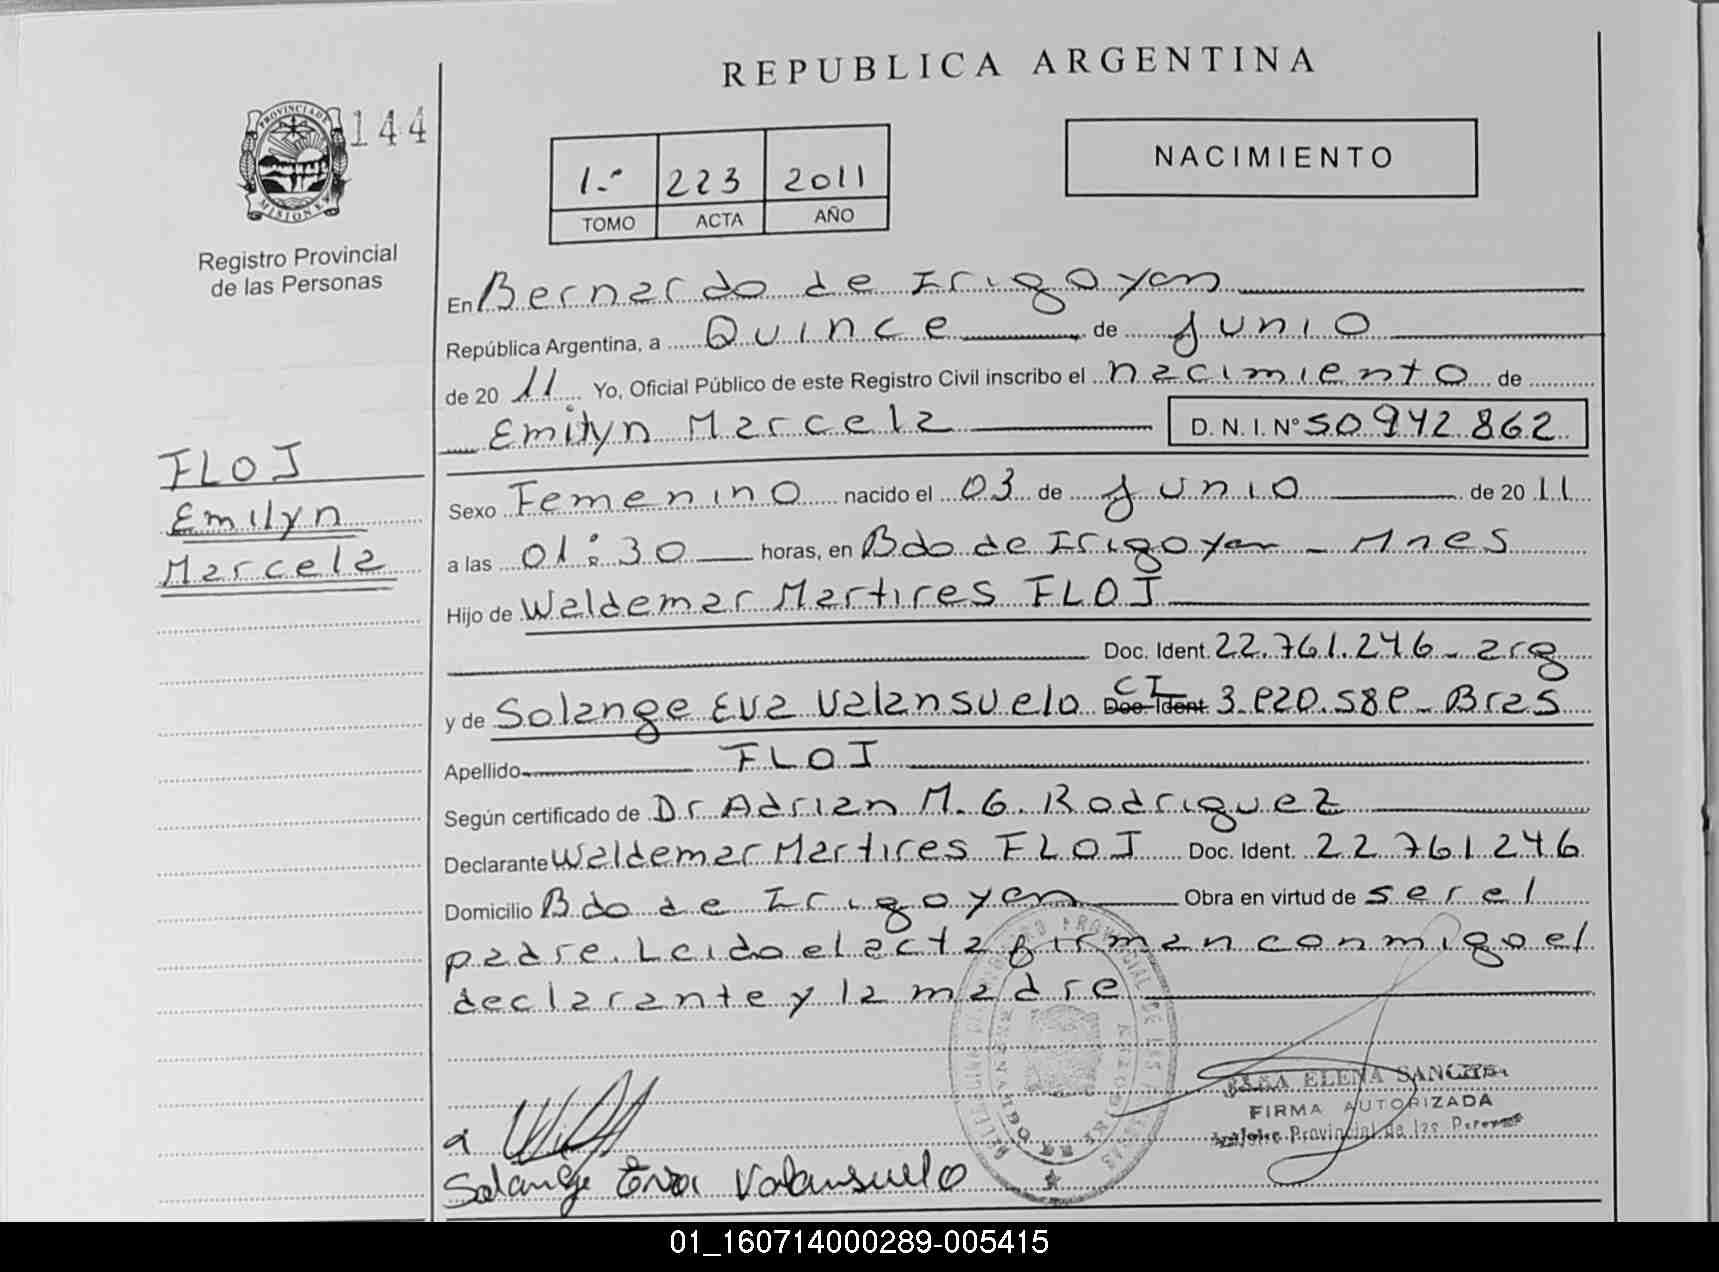 REPUBLICA ARGENTINA
PROVINCIA DE MISIONES
144
1.º 223 2011
TOMO ACTA AÑO
NACIMIENTO
Registro Provincial
de las Personas
En Bernardo de Irigoyen
República Argentina, a Quince de Junio
de 20 11 Yo, Oficial Público de este Registro Civil inscribo el nacimiento de
Emilyn Marcela D. N. I. Nº 50 942 862
FLOJ
Emilyn
Marcela
Sexo Femenino nacido el 03 de Junio de 20 11
a las 01:30 horas, en Bdo de Irigoyen - Mnes
Hijo de Waldemar Martires FLOJ
Doc. Ident. 22.761.246 - arg
y de Solange Eva Valansuelo CI Doc Ident. 3.820.588 - Bras
Apellido FLOJ
Según certificado de Dr Adrian M. G. Rodriguez
Declarante Waldemar Martires FLOJ Doc. Ident. 22 761 246
Domicilio Bdo de Irigoyen Obra en virtud de ser el
padre. Leido el acta firman conmigo el
declarante y la madre
ELENA
FIRMA AUTORIZADA
Provincial de las Personas
Solange Eva Valansuelo
01_160714000289-005415